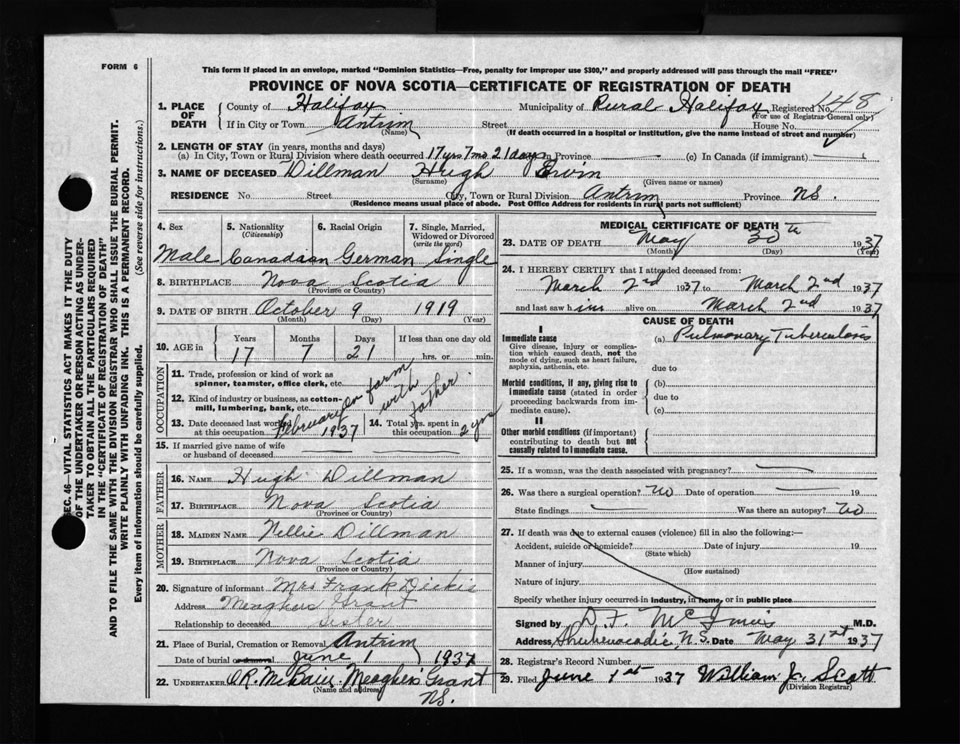 FORM 6
This form if placed in an envelope, marked "Dominion Statistics—Free, penalty for improper use $300," and properly addressed will pass through the mail "FREE"
PROVINCE OF NOVA SCOTIA—CERTIFICATE OF REGISTRATION OF DEATH
1. PLACE OF DEATH County of Halifax Municipality of Rural Halifax Registered No. 148
(For use of Registrar-General only)
If in City or Town Antrim Street House No.
(Name) (If death occurred in a hospital or institution, give the name instead of street and number)
2. LENGTH OF STAY (in years, months and days)
(a) In City, Town or Rural Division where death occurred 17 yrs 7 mo 21 days In Province — (c) In Canada (if immigrant) —
3. NAME OF DECEASED Dillman Hugh Ervin
(Surname) (Given name or names)
RESIDENCE No. Street City, Town or Rural Division Antrim Province NS.
(Residence means usual place of abode. Post Office Address for residents in rural parts not sufficient)
4. Sex 5. Nationality (Citizenship) 6. Racial Origin 7. Single, Married, Widowed or Divorced (write the word)
Male Canadaan German Single
8. BIRTHPLACE Nova Scotia
(Province or Country)
9. DATE OF BIRTH October 9 1919
(Month) (Day) (Year)
10. AGE in Years Months Days If less than one day old
17 7 21 hrs. or min.
OCCUPATION
11. Trade, profession or kind of work as spinner, teamster, office clerk, etc.
12. Kind of industry or business, as cotton-mill, lumbering, bank, etc.
on farm with father
13. Date deceased last worked at this occupation February 1937 14. Total yrs. spent in this occupation 2 yrs
15. If married give name of wife or husband of deceased — —
FATHER
16. NAME Hugh Dillman
17. BIRTHPLACE Nova Scotia
(Province or Country)
MOTHER
18. MAIDEN NAME Nellie Dillman
19. BIRTHPLACE Nova Scotia
(Province or Country)
20. Signature of informant Mrs Frank Dickie
Address Meaghers Grant
Relationship to deceased Sister
21. Place of Burial, Cremation or Removal Antrim
Date of burial or removal June 1 1937
22. UNDERTAKER R. McBain Meagher's Grant
(Name and address)
NS.
MEDICAL CERTIFICATE OF DEATH
23. DATE OF DEATH May 30th 1937
(Month) (Day) (Year)
24. I HEREBY CERTIFY that I attended deceased from:
March 2nd 1937 to March 2nd 1937
and last saw him alive on March 2nd 1937
CAUSE OF DEATH
I
Immediate cause (a) Pulmonary Tuberculosis
Give disease, injury or complication which caused death, not the mode of dying, such as heart failure, asphyxia, asthenia, etc.
due to
Morbid conditions, if any, giving rise to immediate cause (stated in order proceeding backwards from immediate cause).
(b)
due to
(c)
II
Other morbid conditions (if important) contributing to death but not causally related to immediate cause.
25. If a woman, was the death associated with pregnancy? —
26. Was there a surgical operation? no Date of operation — 19
State findings — Was there an autopsy? no
27. If death was due to external causes (violence) fill in also the following:—
Accident, suicide or homicide? Date of injury 19
(State which)
Manner of injury
(How sustained)
Nature of injury
Specify whether injury occurred in industry, in home, or in public place
Signed by D. F. McInnis M.D.
Address Shubenacadie, N.S. Date May 31st 1937
28. Registrar's Record Number
29. Filed June 1st 1937 William J. Scott
(Division Registrar)
SEC. 46—VITAL STATISTICS ACT MAKES IT THE DUTY
OF THE UNDERTAKER OR PERSON ACTING AS UNDER-
TAKER TO OBTAIN ALL THE PARTICULARS REQUIRED
IN THE "CERTIFICATE OF REGISTRATION OF DEATH"
AND TO FILE THE SAME WITH THE DIVISION REGISTRAR WHO SHALL ISSUE THE BURIAL PERMIT.
WRITE PLAINLY WITH UNFADING INK. THIS IS A PERMANENT RECORD.
Every item of information should be carefully supplied. (See reverse side for instructions.)